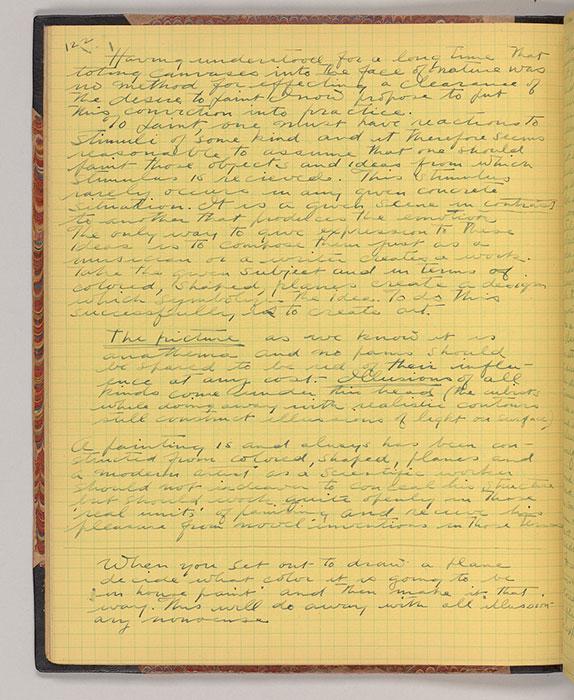 122.
Having understood for a long time that
toting canvases into the face of nature was
no method for effecting a clearance of
the desire to paint I now propose to put
this conviction into practice.
To paint, one must have reactions to
stimuli of some kind and it therefore seems
reasonable to assume that one should
paint those objects and ideas from which
stimulus is recieved. This stimulus
rarely occurs in any given concrete
situation. It is a given scene in contrast
to another that produces the emotion
The only way to give expression to these
ideas is to compose them just as a
musician or a writer creates a work.
Take the given subject and in terms of
colored, shaped, planes create a design
which symbolizes the idea. To do this
successfully, is to create art.
The picture as we know it is
anathema and no pains should
be spared to be rid of their influ-
ence at any cost. - Illusions of all
kinds come under this head (the cubists
while doing away with realistic contours
still construct illusions of light on surface)
A painting is and always has been con-
structed from colored, shaped, planes and
a modern artist as a scientific worker
should not endeavor to conceal his structure
but should work quite openly in these
'real units' of painting and receive his
pleasure from novel inventions in those terms
When you set out to draw a plane
decide what color it is going to be
in house paint and then make it that
way. This will do away with all illusion-
ary nonsense